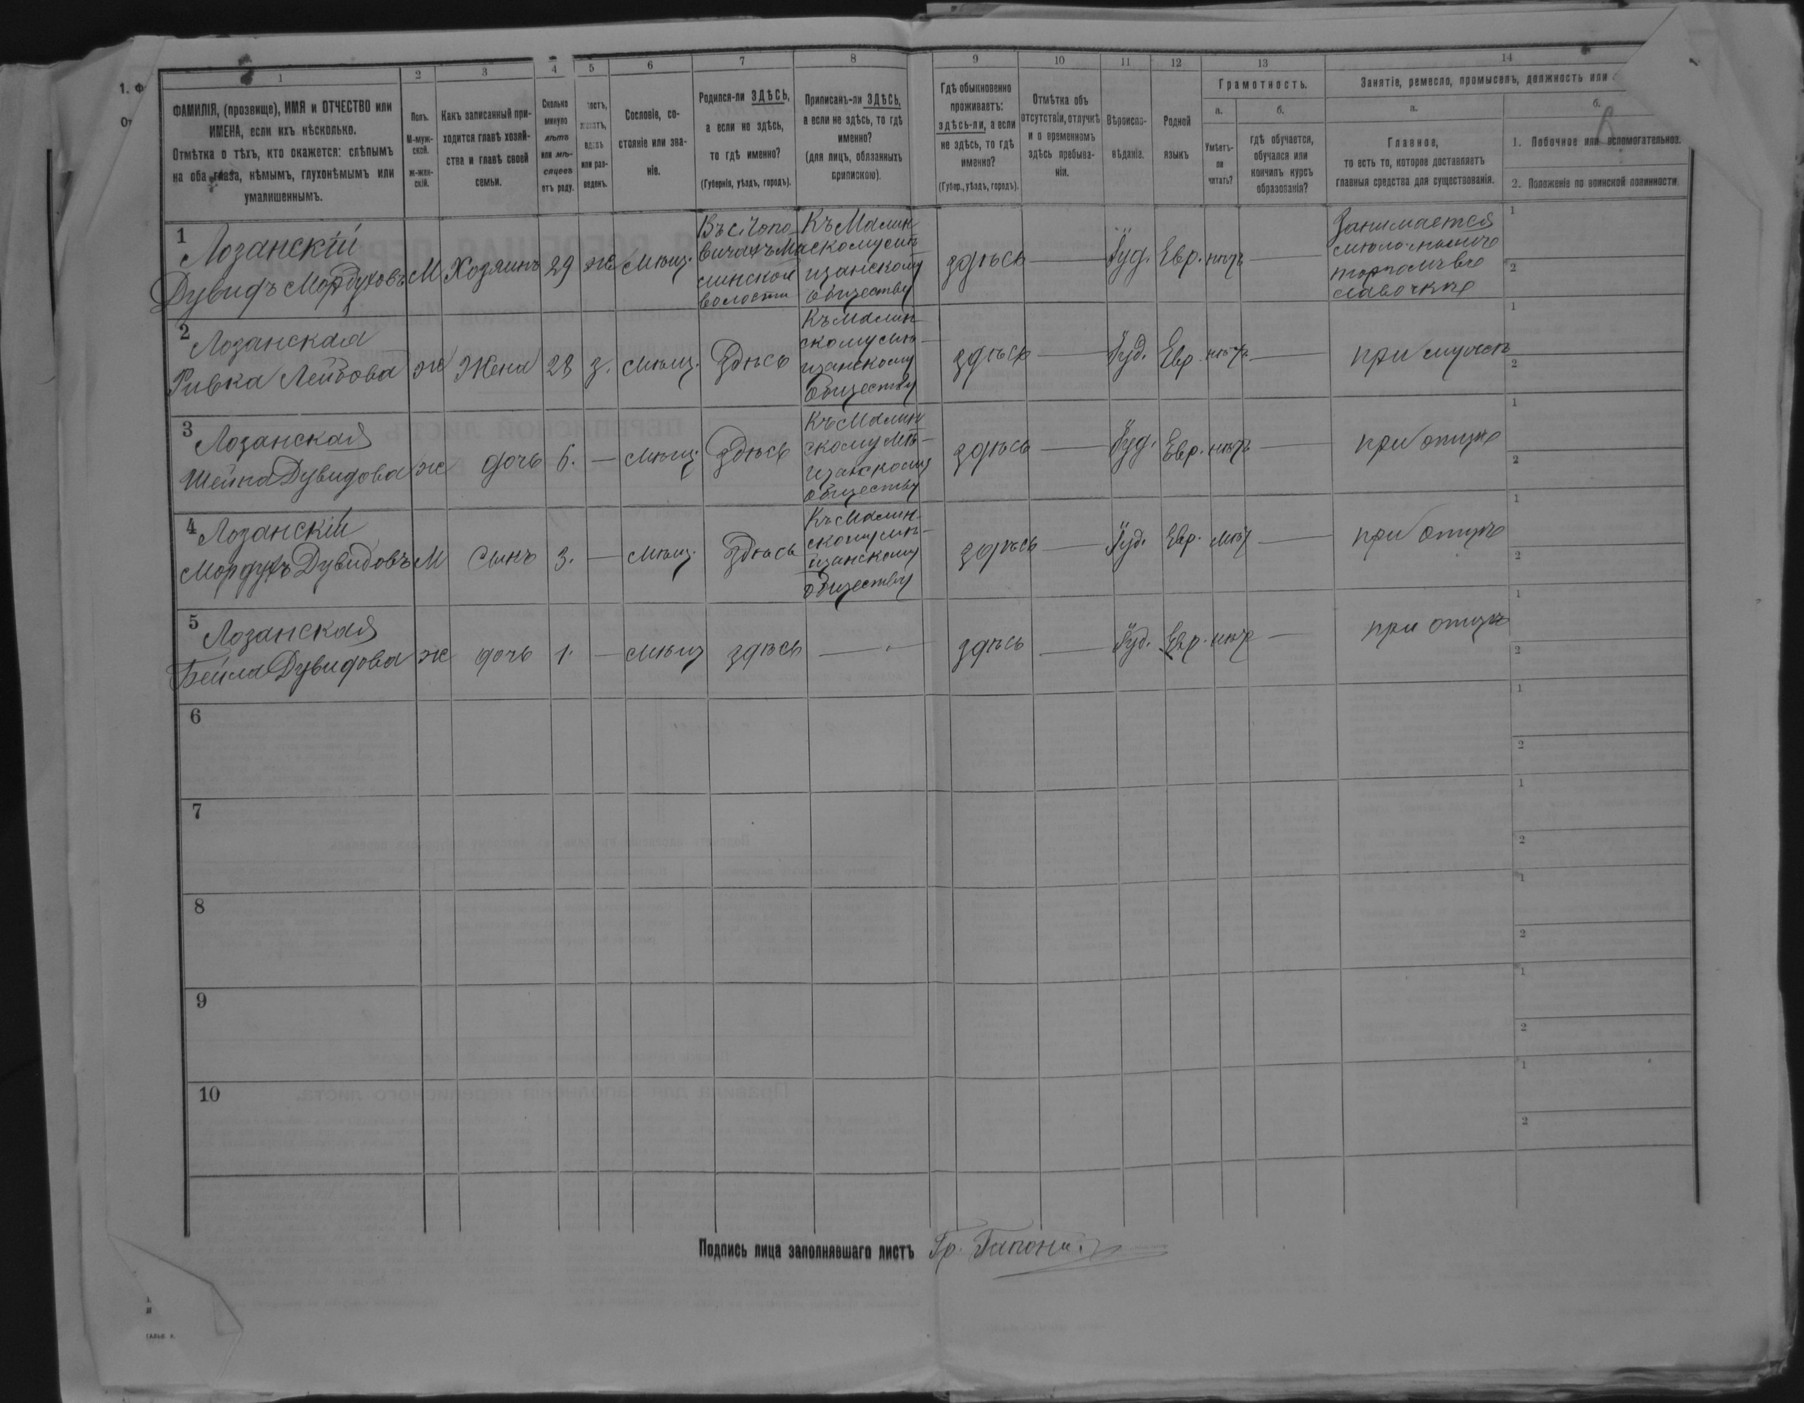 1. Ф
От
1 2 3 4 5 6 7 8 9 10 11 12 13 14
ФАМИЛІЯ, (прозвище), ИМЯ и ОТЧЕСТВО или
ИМЕНА, если ихъ нѣсколько.
Отмѣтка о тѣхъ, кто окажется: слѣпымъ
на оба глаза, нѣмымъ, глухонѣмымъ или
умалишеннымъ.
Полъ.
М-муж-
ской.
ж-жен-
скій.
Какъ записанный при-
ходится главѣ хозяй-
ства и главѣ своей
семьи.
Сколько
минуло
лѣтъ
или мѣ-
сяцевъ
отъ роду.
или раз-
веденъ.
Сословіе, со-
стояніе или зва-
ніе.
Родился-ли ЗДѢСЬ,
а если не здѣсь,
то гдѣ именно?
(Губернія, уѣздъ, городъ).
Приписанъ-ли ЗДѢСЬ,
а если не здѣсь, то гдѣ
именно?
(для лицъ, обязанныхъ
припискою).
Гдѣ обыкновенно
проживаетъ:
здѣсь-ли, а если
не здѣсь, то гдѣ
именно?
(Губер., уѣздъ, городъ).
Отмѣтка объ
отсутствіи, отлучкѣ
и о временномъ
здѣсь пребыва-
ніи.
Вѣроиспо-
вѣданіе.
Родной
языкъ
Грамотность.
а.
Умѣетъ-
ли
читать?
б.
гдѣ обучается,
обучался или
кончилъ курсъ
образованія?
Занятіе, ремесло, промыселъ, должность или
а.
Главное,
то есть то, которое доставляетъ
главныя средства для существованія.
б.
1. Побочное или вспомогательное.
2. Положеніе по воинской повинности
1
Лозанскій
Дувидъ Мордуховъ
М
Хозяинъ
29
ж
мѣщ.
волости
Къ Малин
скому мѣ
щанскому
обществу
здѣсь
Іуд.
Евр.
нѣтъ
Занимается
лавочкѣ
1
2
2
Лозанская
Ривка Лейбова
ж
Жена
28
з.
мѣщ.
Здѣсь
Къ Малин
скому мѣ-
щанскому
обществу
здѣсь
Іуд.
Евр.
нѣтъ
при мужѣ
1
2
3
Лозанская
Шейна Дувидова
ж
дочь
6.
мѣщ.
Здѣсь
Къ Малин
скому мѣ-
щанскому
обществу
здѣсь
Іуд.
Евр.
нѣтъ
при отцѣ
1
2
4
Лозанскій
Мордухъ Дувидовъ
М
сынъ
3.
мѣщ.
Здѣсь
Къ Малин-
скому мѣ-
щанскому
обществу
здѣсь
Іуд.
Евр.
нѣт
при отцѣ
1
2
5
Лозанская
Бейла Дувидова
ж
дочь
1.
мѣщ
здѣсь
здѣсь
Іуд.
Евр.
нѣт
при отцѣ
1
2
6
1
2
7
1
2
8
1
2
9
1
2
10
1
2
Подпись лица заполнявшаго листъ Гр.